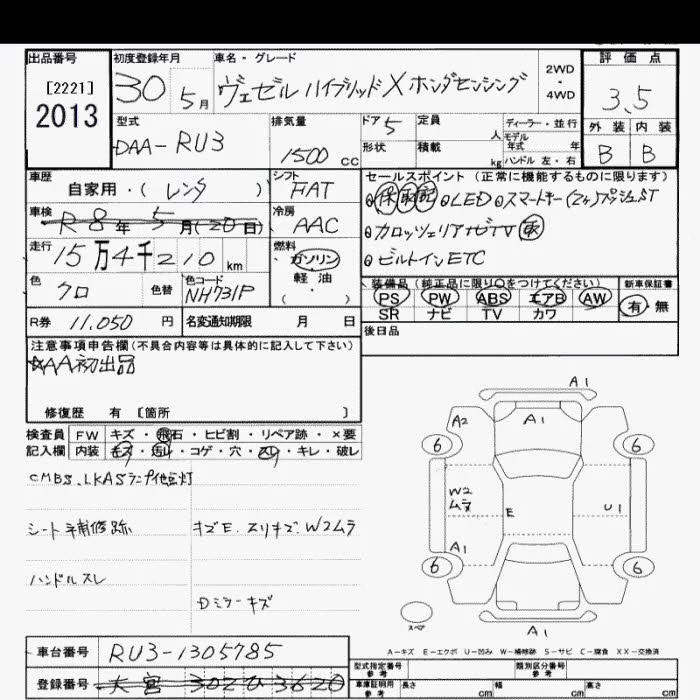 出品番号 初度登録年月 車名・グレード 評価点
[2221]
2013
30 5月 ヴェゼル ハイブリッドX ホンダセンシング 2WD・4WD 3.5
型式 排気量 ドア 定員 人 ディーラー・並行 外装 内装
DAA-RU3 1500cc 5 モデル年式 年 B B
形状 積載 kg ハンドル 左・右
車歴 シフト セールスポイント (正常に機能するものに限ります)
自家用・(レンタ) FAT 保 取 記 LED スマートキー(2ヶ)プッシュST
車検 冷房
R8年 5月(20日) AAC カロッツェリアナビTV
走行 燃料
15万4千210km ガソリン・軽油 ビルトインETC
( )
色 色替 色コード 装備品 (純正品に限り○をつけてください) 新車保証書
クロ NH731P PS PW ABS エアB AW 有・無
SR ナビ TV カワ
R券 11,050円 名変通知期限 月 日 後日品
注意事項申告欄(不具合内容等は具体的に記入して下さい)
☆AA初出品
修復歴 有 〔箇所 〕
検査員 FW キズ・飛石・ヒビ割・リペア跡・×要
記入欄 内装 キズ・汚れ・コゲ・穴・スレ・キレ・破レ
CMBS.LKASランプ他点灯
シート 補修跡 キズE.スリキズ.W2ムラ
ハンドルスレ
Dミラーキズ
A1
A2 A1
6 6
W2
ムラ E U1
A1
6 6
スペア A1
A-キズ E-エクボ U-凹み W-補修跡 S-サビ C-腐食 XX-交換済
車台番号 RU3-1305785
型式指定番号 参考 類別区分番号 参考
登録番号 大宮 302 ひ 3620
車庫証明用 参考 長さ cm 幅 cm 高さ cm